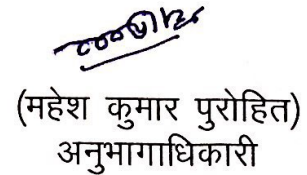 (महेश कुमार पुरोहित)
अनुभागाधिकारी